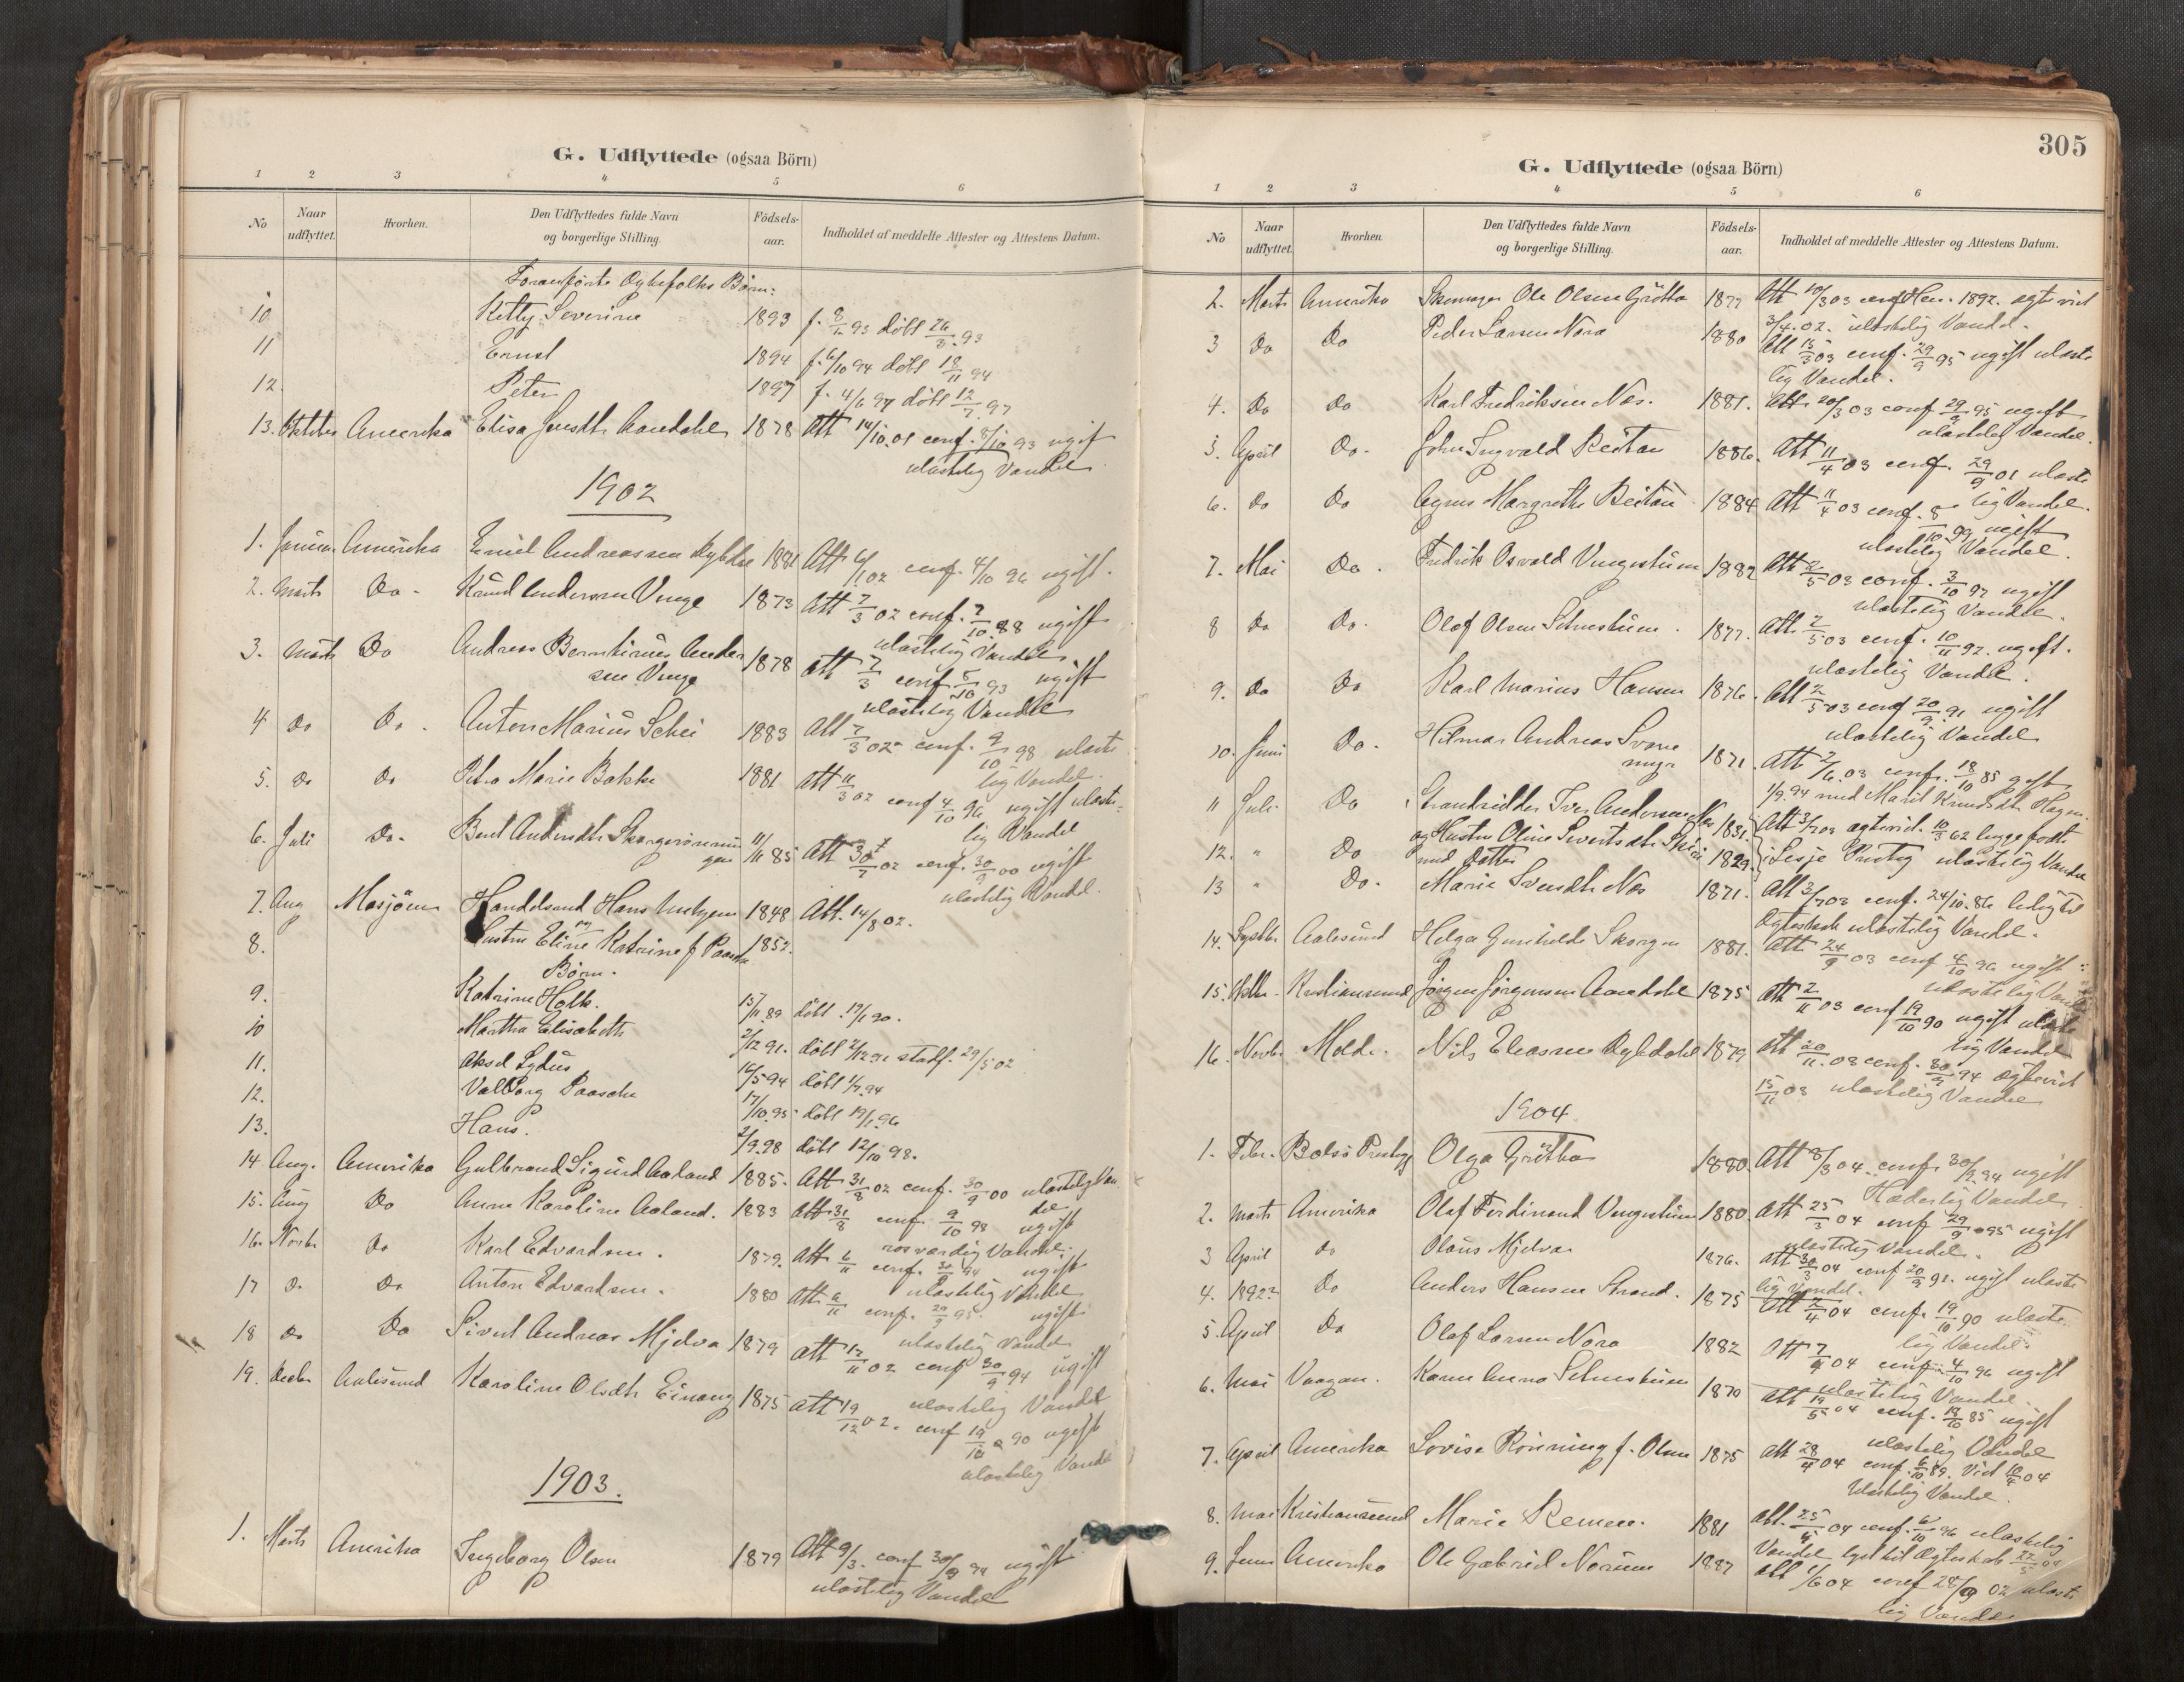 G. Udflyttede (ogsaa Börn)
1 2 3 4 5 6
No Naar udflyttet. Hvorhen. Den Udflyttedes fulde Navn og borgerlige Stilling. Födsels-aar. Indholdet af meddelte Attester og Attestens Datum.
Foranførte Ægtefolks Børn:
10 Kitty Severine 1893 f. 93 døbt 26/3 93
11 Ernst 1894 f. 6/10 94 døbt 18/11 94
12. Peter 1897 f. 4/6 97 døbt 12/7 97
13. Oktober Amerika Elisa Aandahl 1878 Att 14/10.01 conf. 8/10 93 ugift
ulastelig Vandel
1902
1. Januar Amerika Emil Andreassen Dybdal 1881 Att 6/1 02 conf. 4/10 96 ugift.
2. Marts Do. Knud Andersen Venge 1873 Att 7/3 02 conf. 7/10.88 ugift
ulastelig Vandel
3. Marts Do Andreas Bernhinus Ander
sen Venge 1878 Att 7/3 conf 8/10 93 ugift
ulastelig Vandel
4 Do Do. Anton Marius Schei 1883 Att 7/3 02 conf. 9/10 98 ulaste
lig Vandel.
5. Do Do Petra Marie Bakke 1881 Att 11/3 02 conf 4/10 96 ugift ulaste=
lig Vandel
6. Juli Do. Berit Andersdtr 11/11 85 Att 30/7 02 conf. 30/9 00 ugift
ulastelig Vandel.
7. Aug Mosjöen Handelsmd Hans 1848 Att. 14/8 02.
8. Hustru Eline Katrine f Paasche 1852.
Børn.
9. Katrine Holk. 15/11 89 døbt 19/1 90.
10 Martha Elisabeth 2/12 91. døbt 2/12 91 stadf. 29/5 02
11. Aksel Lydus 16/5 94 døbt 1/7 94
12. Valborg Paasche 17/10.95 døbt 19/1.96
13. Hans. 2/9.98 døbt 12/10 98.
14 Aug. Amerika Gulbrand Sigurd Aaland 1885. Att 31/8 02 conf. 30/9 00 ulastelig Van
del
15. Aug Do Anne Karoline Aaland. 1883 Att 31/8 conf. 9/10 98 ugift
rosværdig Vandel.
16. Novbr Do Karl Edvardsen. 1879. Att 6/11 conf. 30/9 94 ugift
ulastelig Vandel
17 D. Do Anton Edvardsen. 1880 Att 6/11 conf. 29/9 95. ugift
ulastelig Vandel
18 Do Do Sivert Andreas Mjelva 1879 Att 12/11 02 conf 30/9 94 ugift
ulastelig Vandel
19. Decbr Aalesund Karoline Olsdtr Einang 1875 Att 19/12 02. conf 19/10 90 ugift
ulastelig Vandel
1903.
1. Marts Amerika Ingeborg Olsen 1879 Att 9/3. conf 30/9 94 ugift
ulastelig Vandel
305
G. Udflyttede (ogsaa Börn)
1 2 3 4 5 6
No Naar udflyttet. Hvorhen. Den Udflyttedes fulde Navn og borgerlige Stilling. Födsels-aar. Indholdet af meddelte Attester og Attestens Datum.
2. Marts Amerika Skomager Ole Olsen Grötta 1877 Att 10/3 03 conf Hen. 1892. ægteviet
3/4.02. ulastelig Vandel.
3 Do Do Peder Larsen Nora 1880 Att 15/3 03 conf. 29/9 95 ugift ulaste
lig Vandel.
4. Do Do Karl Fredriksen Næs. 1881. Att 20/3 03 conf 29/9 95 ugift
ulastelig Vandel.
5. April Do. John Ingvald Reitan 1886. Att 11/4 03 conf. 29/9 01 ulaste
lig Vandel.
6. Do Do Agnes Margrethe Reitan 1884 Att 11/4 03 conf. 8/10 99 ugift
ulastelig Vandel.
7. Mai Do. Fredrik Osvald Vengestuen 1882 Att 2/5 03 conf. 3/10 97 ugift
ulastelig Vandel.
8 Do Do. Olaf Olsen Setnestuen. 1877. Att. 2/5 03 conf. 10/11 92. ugift.
ulastelig Vandel.
9. Do Do Karl Marius Hansen 1876. Att 2/5 03 conf 20/9.91 ugift
ulastelig Vandel
10. Juni Do. Hilmar Andreas Svane
myr 1871. Att 2/6.03 conf. 18/10 85 gift
1/9.94 med Marit Knudsdtr Hagen
11 Juli Do Strandsidder Iver Andersen Næs 1831. Att 3/7 03 ægteviet. 10/3 62 begge født
12. " Do og Hustru Oline Sivertsdtr 1829. i Lesje Prstg ulastelig Vandel
med Datter
13 " Do. Marie Iversdtr Næs 1871. Att 3/7 03 conf. 24/10.86 ledig til
Ægteskab ulastelig Vandel.
14. Septbr Aalesund Helga Gunhilde Skorgen 1881. Att 24/9 03 conf 4/10 96 ugift
ulastelig Vandel
15. Oktbr. Kristiansund Jörgen Jörgensen Aandahl 1875 Att 2/11 03 conf 19/10 90 ugift ulaste
lig Vandel
16. Novbr. Molde. Nils Eliassen Dybdahl 1879 Att 20/11.03 conf. 30/9 94 ægteviet
15/11 03 ulastelig Vandel
1904
1. Febr. Bolsö Prestgj Olga Grötta 1880. Att 8/3 04. conf. 30/9.94 ugift
Hæderlig Vandel
2. Marts Amerika Olaf Ferdinand Vengestuen 1880. Att 25/3 04 conf 29/9 95 ugift
ulastelig Vandel.
3 April do Olaus Mjelva 1876. Att 30/3 04 conf 20/9 91. ugift ulaste
lig Vandel.
4. 1892? Do Anders Hansen Strand. 1875 Att 2/4 04 conf. 19/10 90 ulaste
lig Vandel.
5. April Do Olaf Larsen Nora 1882 Att 7/4 04 conf. 4/10 96 ugift
ulastelig Vandel.
6. Mai Vaagan. Karen Anna Setnestuen 1870 Att 19/5 04 conf. 18/10 85 ugift
ulastelig Vandel
7. April Amerika Lovise Rönning f. Olsen 1875 Att 28/4 04 conf. 6/10 89. Viet 10/4 04
Ulastelig Vandel.
8. Mai Kristiansund Marie Remen. 1881 Att. 25/5 04 conf. 4/10 96 ulastelig
Vandel lyst til Ægteskab 22/5 04
9. Juni Amerika Ole Gabriel Norum 1887 Att 1/6 04 conf 28/9 02 ulaste
lig Vandel